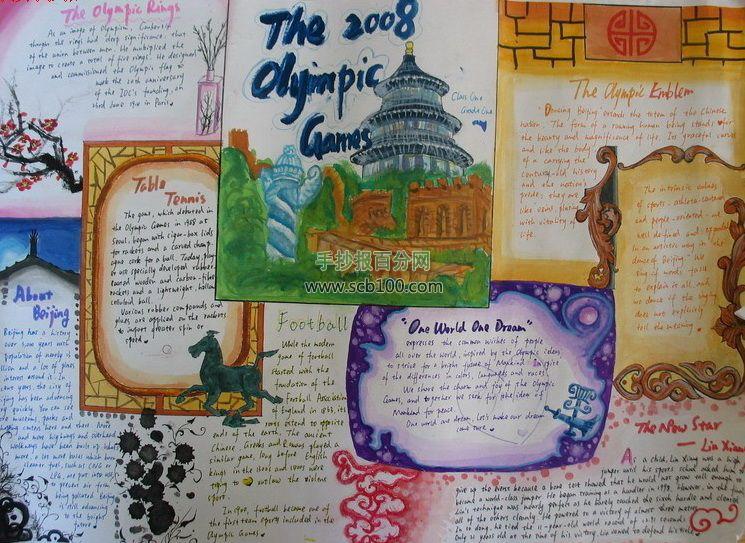 The Olympic Rings
As an image of Olympism, Coubertin
thought the rings had deep significance: that
of the union between men. He multiplied the
image to create a total of five rings. He designed
and commissioned the Olympic flag to
mark the 20th anniversary
of the IOC's founding, on
June in Paris.
The 2008
Olyimpic
Games
Class One
Grade One
The Olympic Emblem
Dancing Beijing extends the totem of the Chinese
nation. The form of a running human being stands for
the beauty and magnificence of life. Its graceful curves
and like the body
of a carrying the
century-old history
and the nation's
pride; they are
like veins,
with vitality of
life.
Table
Tennis
The game, which debuted in
the Olympic Games in 1988 at
Seoul, began with cigar-box lids
for rackets and a carved champ-
agne cork for a ball. Today, play-
ers use specially developed rubber-
coated wooden and carbon-fibre
rackets and a lightweight, hollow
celluloid ball.
Various rubber compounds and
glues are applied to the rackets
to impart greater spin or
speed.
The intrinsic values
of sports - athlete-centered
and people-oriented - are
well defined and
in an artistic way in the
"dance of Beijing". We
sing if words fail
to explain its all and
we dance if the singing
does not explicitly
tell the meaning.
手抄报百分网
www.scb100.com
About
Beijing
Beijing has a history
over 3,000 years with
population of nearly 12
million and a lot of places
of interest around it. In
recent years the city of
Beijing has been advancing
quickly. You can see
many
here and there. More
and more highways and overhead
walkways have been built up. What's
more, a lot more buses which burn
cleaner fuel, such as CNG or
LPG, are put into use
to prevent air from
being polluted. Beijing
is still advancing
to the bright
future.
Football
While the modern
game of football
started with the
foundation of the
Football Association
of England in 1863, its
roots extend to opposite
ends of the earth. The ancient
Chinese, Greeks and Romans played a
similar game, long before English
kings in the 1300s and 1400s were
trying to outlaw the violent
sport.
In 1900, football become one of
the first team sports included in the
Olympic Games.
"One World One Dream"
expresses the common wishes of people
all over the world, inspired by the Olympic ideas,
to strive for a bright future of Mankind. In spite
of the differences in colors, languages and races,
We share the charm and joy of the Olympic
Games, and together we seek for the idear of
Mankind for peace.
One world one dream, Let's make our dream
come true.
The New Star
— Lin Xiang
As a child, Lin Xiang was a high
jumper until his sports school asked him to
give up the event because a bone test showed that he would not grow tall enough to
become a world-class jumper. He began training as a hurdler in 1998. However, in the
Lin's technique was nearly perfect as he barely touched the sixth hurdle and cleared
all of the others cleanly. He powered to a victory of almost three metres.
In so doing, he tied the 11-year-old world record of 12.91 seconds.
Only 21 years old at the time of his victory, Lin vowed to defend his title